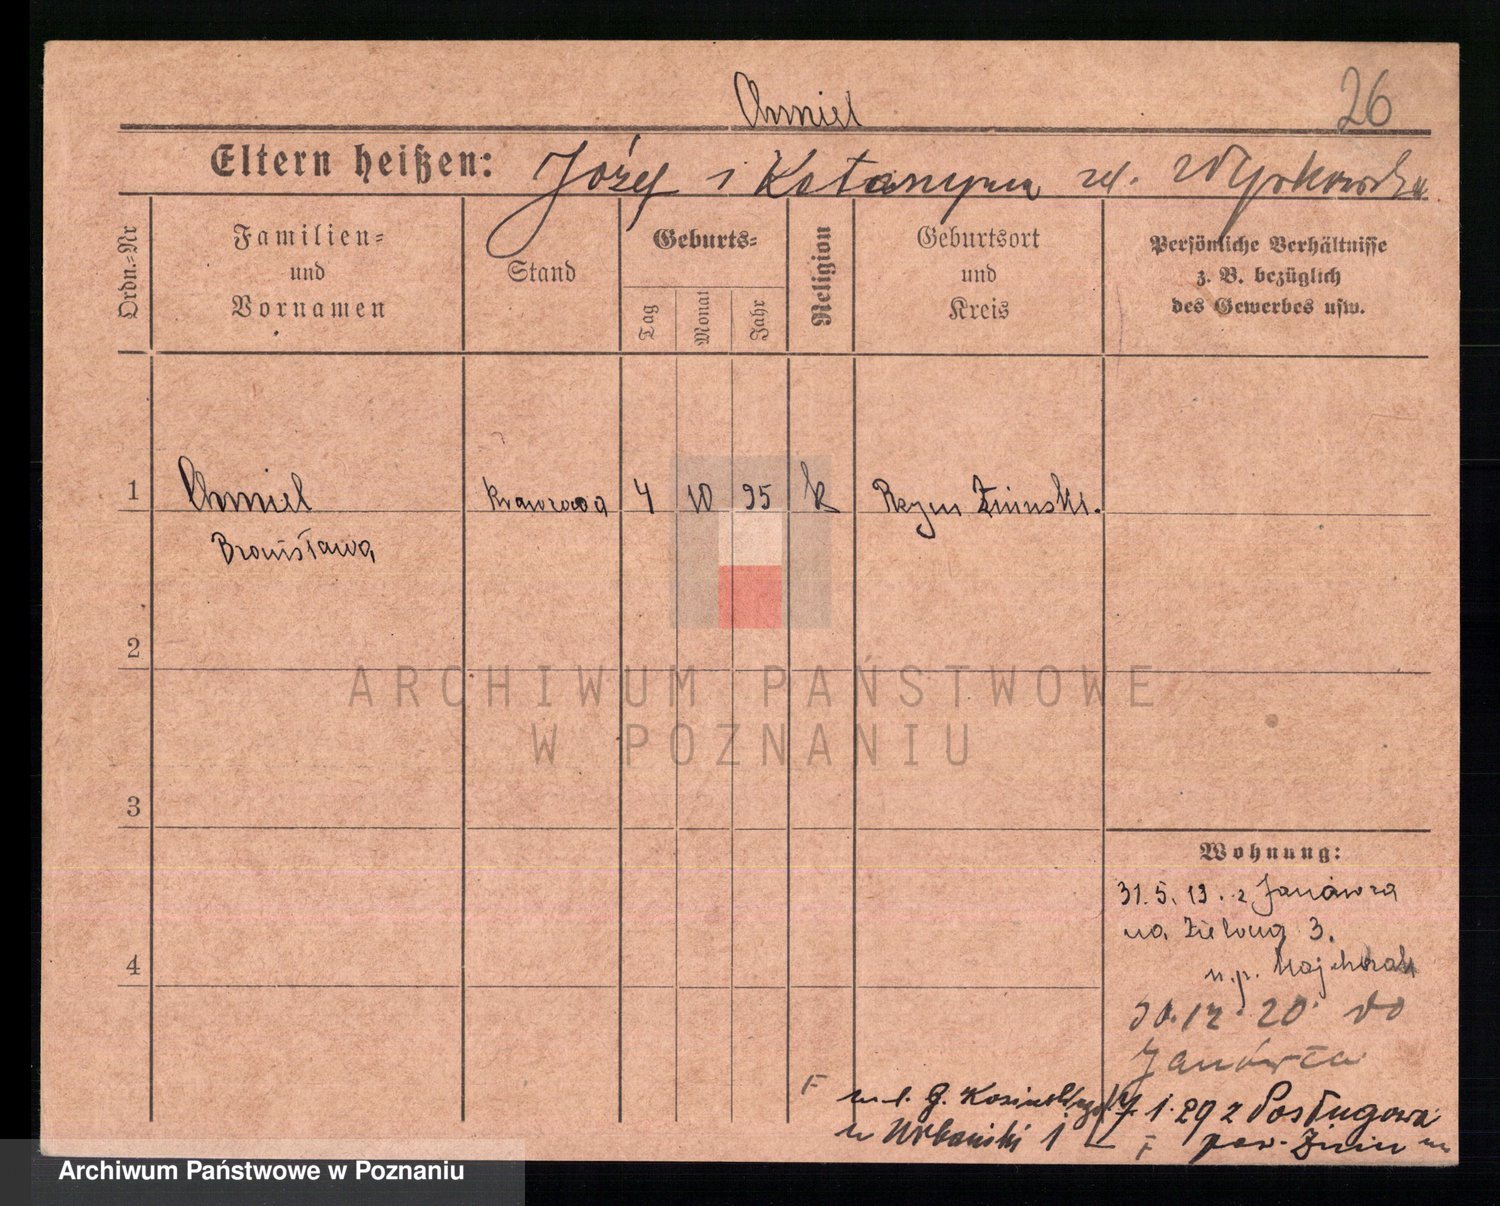 Chmiel
26
Eltern heißen: Józef i Katarzyna
Ordn.=Nr
Familien=
und
Vornamen
Stand
Geburts=
Tag
Monat
Jahr
Religion
Geburtsort
und
Kreis
Persönliche Verhältnisse
z. B. bezüglich
des Gewerbes usw.
1
Chmiel
Krawcowa
4
10
95
k
Żninski.
Bronisława
2
ARCHIWUM PAŃSTWOWE
W POZNANIU
3
Wohnung:
31.5.19. z Janówca
na Zielona 3.
4
n.p. Majchrzak
30.12.20. do
Janówca
F
7.1.29 z Posługowa
F pow. Żnin
Archiwum Państwowe w Poznaniu